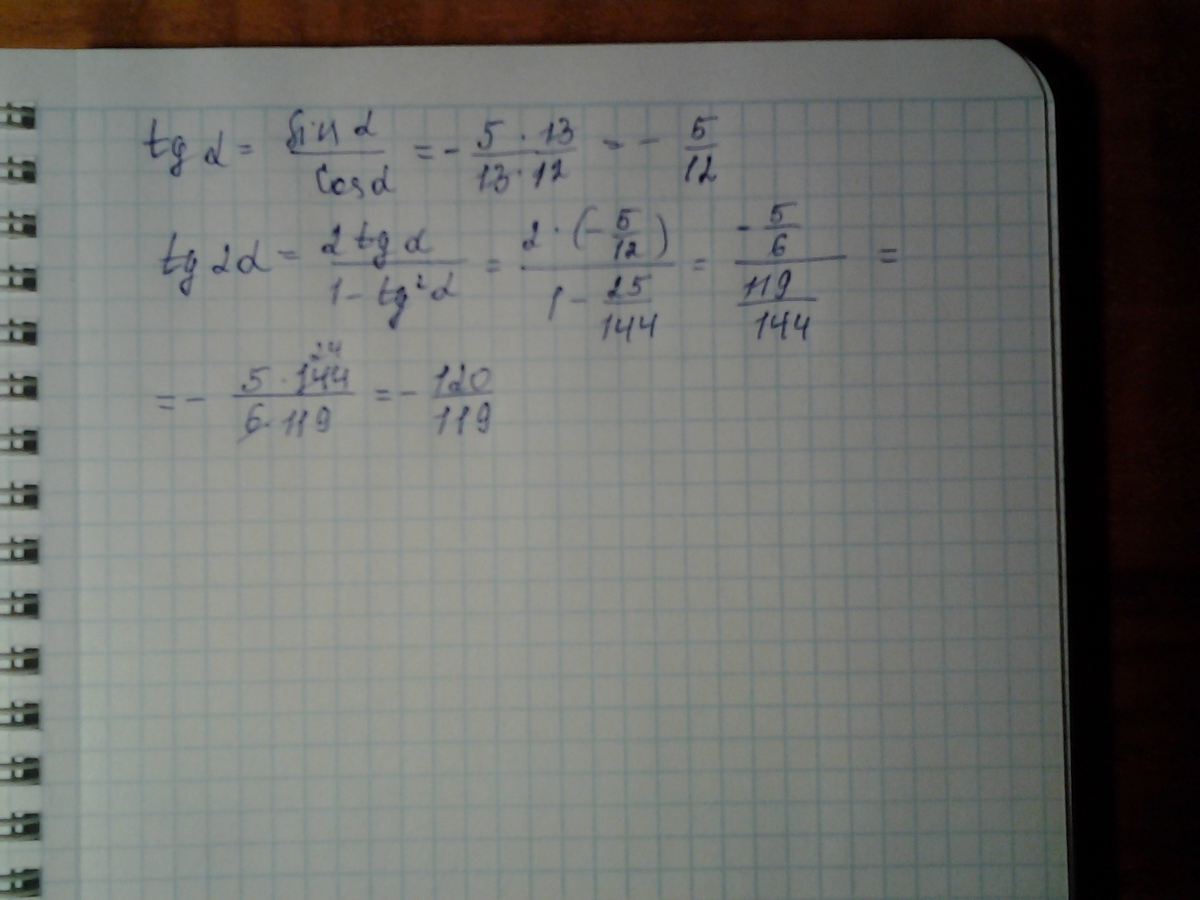 tg α = sin α / cos α = - 5 · 13 / 13 · 12 = - 5/12
tg 2α = 2 tg α / 1 - tg² α = 2 · (- 5/12) / 1 - 25/144 = - 5/6 / 119/144 =
= - 5 · 144 24 / 6 · 119 = - 120/119